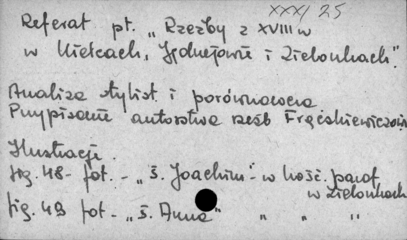 XXX/25
Referat pt. „Rzeźby z XVIII w
w Kielcach, Jędrzejowie i Zielonkach".
Analiza stylist. i porównawcza
Przypisanie autorstwa rzeźb Frąckiewiczowi
Ilustracje.
fig. 48 - fot. - „Ś. Joachim" - w kość. paraf.
w Zielonkach
fig. 49 fot - „Ś. Anna" „ „ „